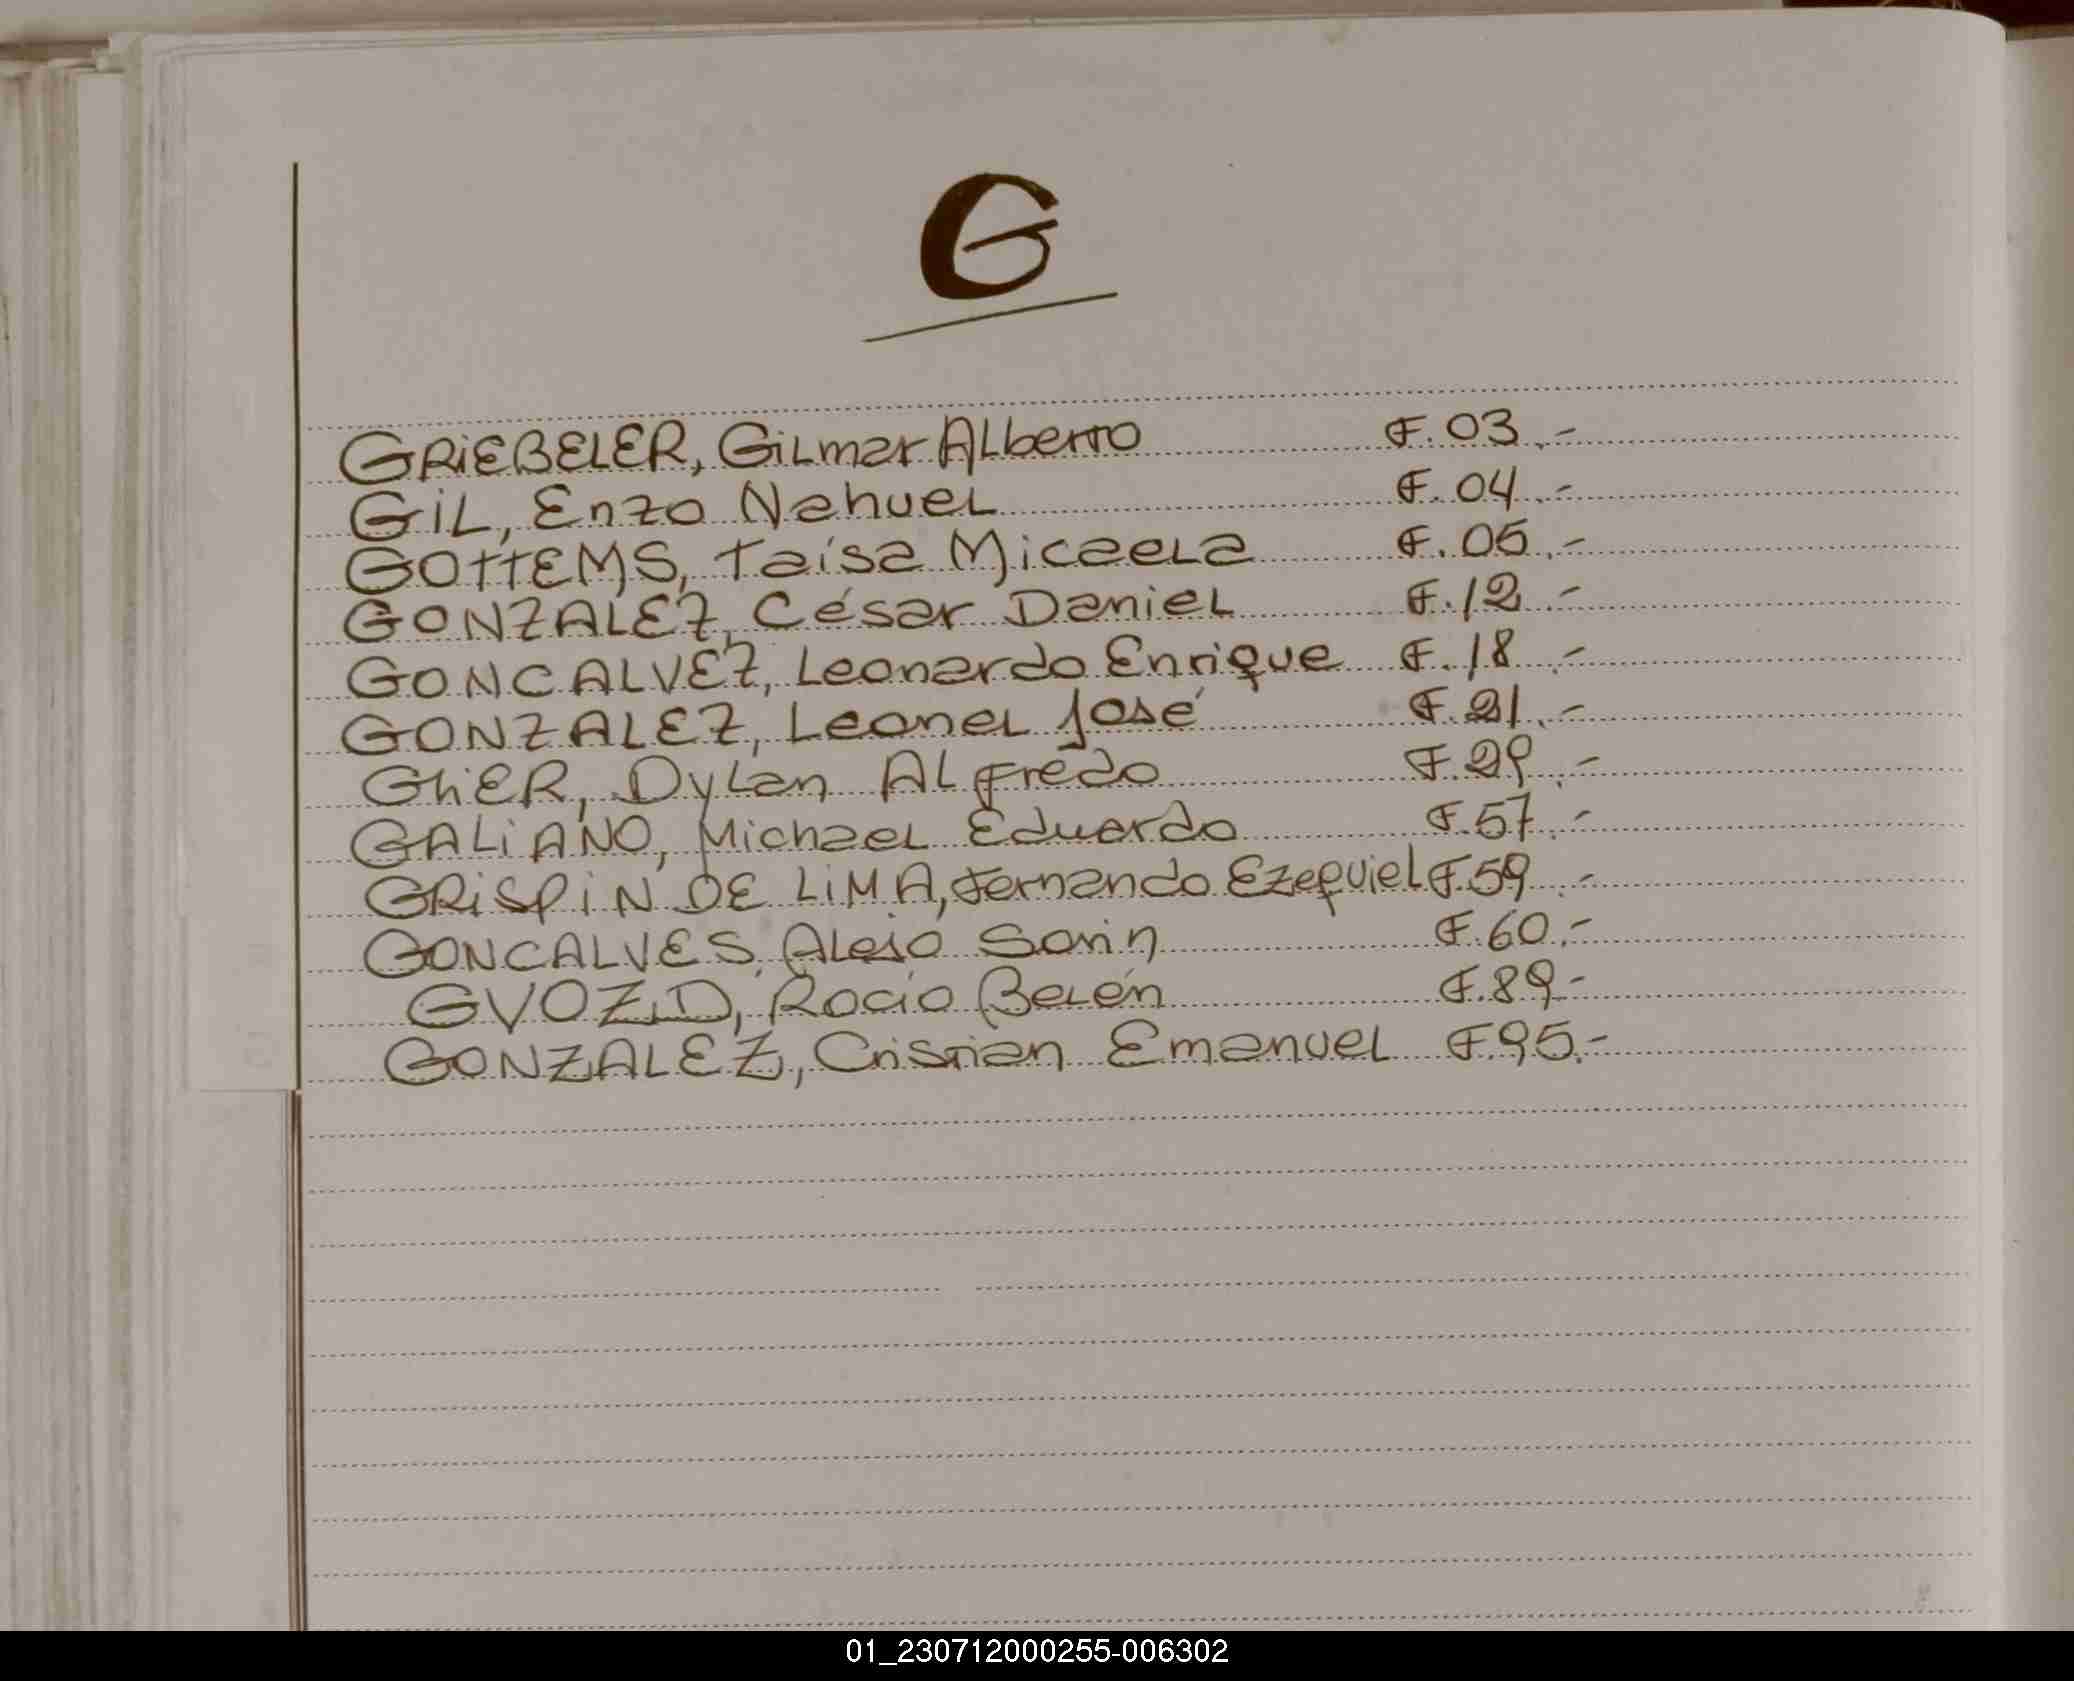 G
GRIEBELER, Gilmar Alberto F. 03.-
GIL, Enzo Nahuel F. 04.-
GOTTEMS, Taísa Micaela F. 05.-
GONZALEZ, César Daniel F. 12.-
GONCALVEZ, Leonardo Enrique F. 18.-
GONZALEZ, Leonel José F. 21.-
GhiER, Dylan Alfredo F. 29.-
GALIANO, Michael Eduardo F. 57.-
GRISPIN DE LIMA, Fernando Ezequiel F. 59.-
GONCALVES, Alejo Sorin F. 60.-
GVOZD, Rocío Belén F. 89.-
GONZALEZ, Cristian Emanuel F 95.-
01_230712000255-006302